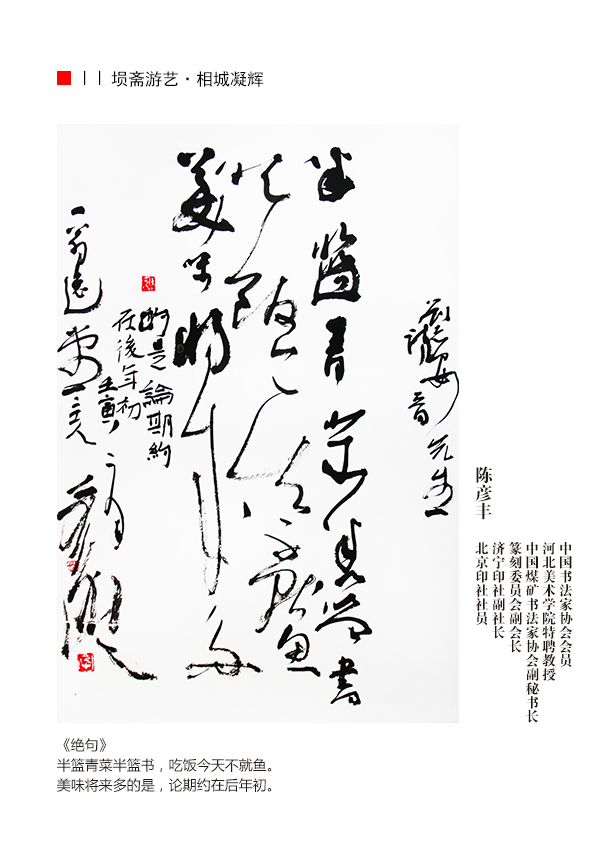 丨丨 埙斋游艺·相城凝辉
半籃青菜半籃書
吃飯今天不就魚
美味將來多
的是論期約
在後年初
壬寅
陈彦丰
中国书法家协会会员
河北美术学院特聘教授
中国煤矿书法家协会副秘书长
篆刻委员会副会长
济宁印社副社长
北京印社社员
《绝句》
半篮青菜半篮书，吃饭今天不就鱼。
美味将来多的是，论期约在后年初。